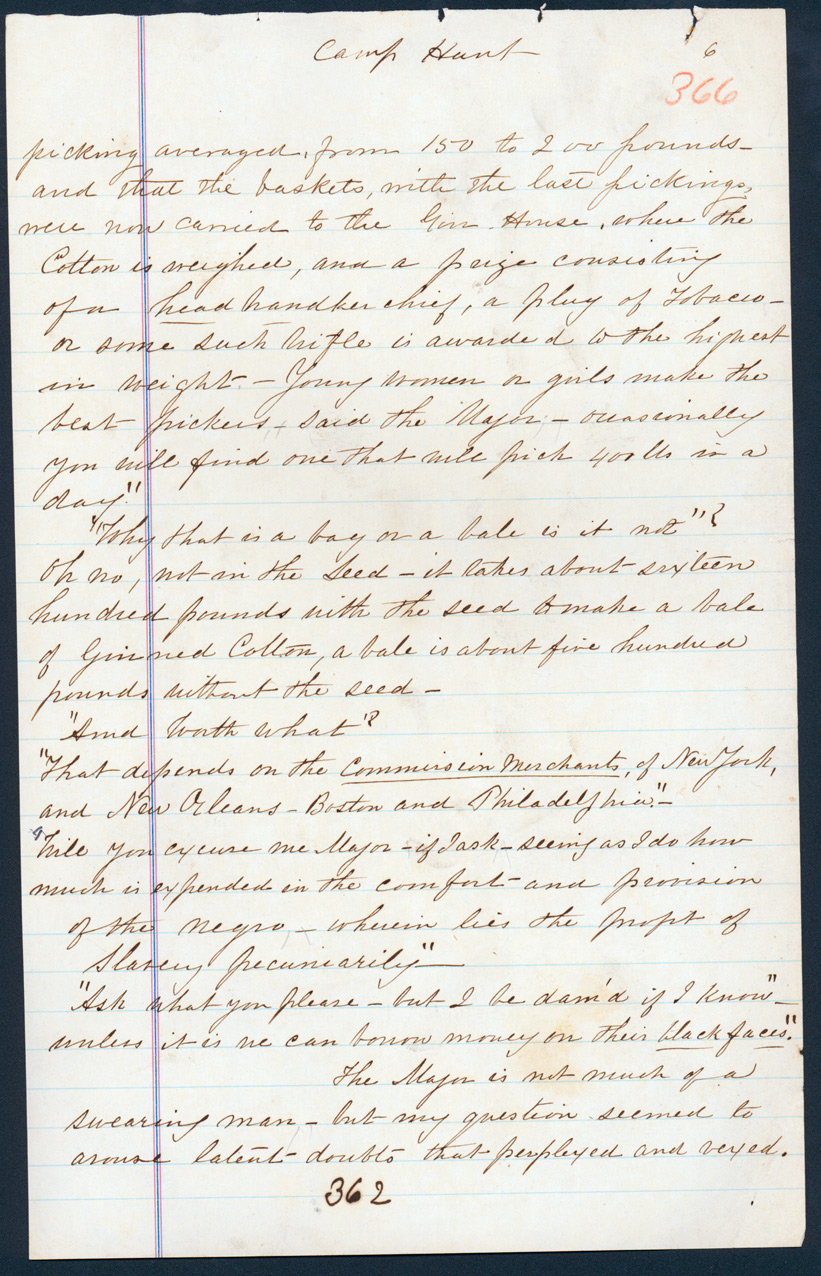 Camp Hunt 6
366
picking averaged, from 150 to 200 pounds—
and that the baskets, with the last pickings,
were now carried to the Gin House, where the
Cotton is weighed, and a prize consisting
of a head handkerchief, a plug of Tobacco—
or some such trifle is awarded to the highest
in weight. — Young women or girls make the
best pickers — said the Major — occasionally
you will find one that will pick 400 lbs in a
day."
"Why that is a bag or a bale is it not"?
Oh no, not in the Seed — it takes about sixteen
hundred pounds with the seed to make a bale
of Ginned Cotton, a bale is about five hundred
pounds without the seed —
"And Worth what"?
"That depends on the Commission Merchants, of New York,
and New Orleans — Boston and Philadelphia." —
"Will you excuse me Major — if I ask — seeing as I do how
much is expended in the comfort and provision
of the negro — wherein lies the profit of
Slavery pecuniarily" —
"Ask what you please — but I be dam'd if I know" —
unless it is we can borrow money on their black faces".
The Major is not much of a
swearing man — but my question seemed to
arouse latent doubts that perplexed and vexed.
362